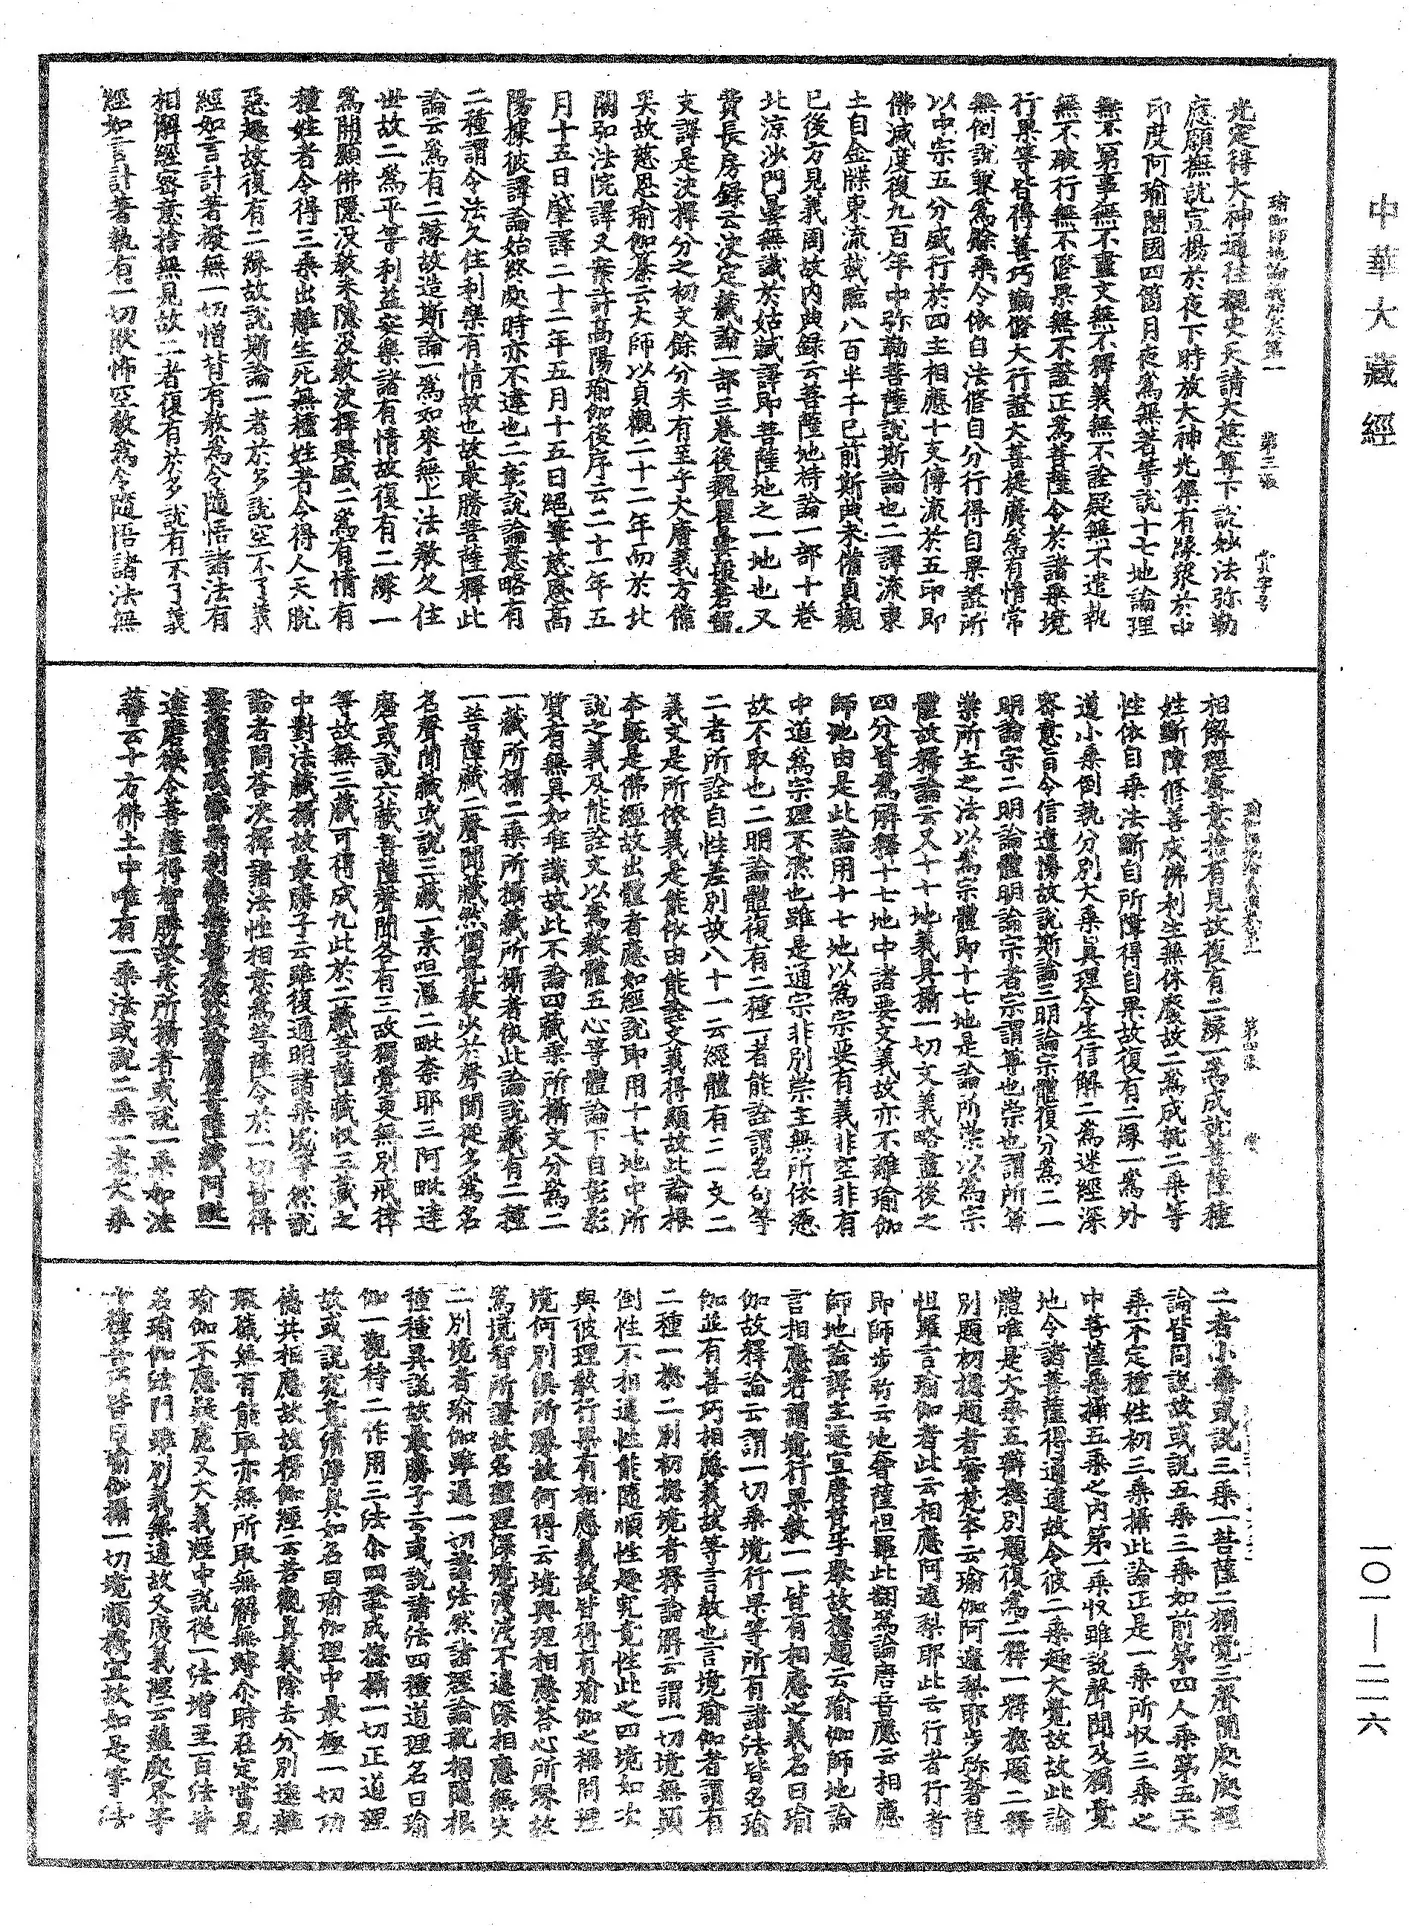 中華大藏經
瑜伽師地論義演卷第一　第三張
光定得大神通往覩史天請大慈尊下說妙法弥勒
應願撫就宣揚於夜下時放大神光集有緣衆於中
印度阿瑜闍國四箇月夜爲無著等說十七地論理
無不窮事無不盡文無不釋義無不詮疑無不遣執
無不破行無不俻果無不證正爲菩薩令於諸乘境
行果等皆得善巧勤修大行證大菩提廣爲有情常
無倒說兼爲餘乘令依自法俻自分行得自果證所
以中宗五分盛行於四主相應十支傳流於五印即
佛滅度後九百年中弥勒菩薩說斯論也二譯流東
土自金牒東流載臨八百半千已前斯典未俻貞觀
已後方見義周故內典録云菩薩地持論一部十卷
北涼沙門曇無讖於姑臧譯即菩薩地之一地也又
費長房録云決定藏論一部三卷後魏瞿曇般若留
支譯是決擇分之初文餘分未有至乎大唐義方備
矣故慈恩瑜伽纂云大師以貞觀二十二年而於北
闕弘法院譯又案許高陽瑜伽後序云二十一年五
月十五日肇譯二十二年五月十五日絕筆慈恩高
陽據彼譯論始終處時亦不違也二彰說論意略有
二種謂令法久住利樂有情故也故最勝菩薩釋此
論云爲有二緣故造斯論一爲如來無上法教久住
世故二爲平等利益安樂諸有情故復有二緣一
爲開顯佛隱没教未隱没教決擇興盛二爲有情有
種姓者令得三乘出離生死無種姓者令得人天脫
惡趣故復有二緣故說斯論一者於多說空不了義
經如言計著撥無一切憎背有教爲令隨悟諸法有
相解經密意捨無見故二者復有於多說有不了義
經如言計著執有一切猒怖空教爲令隨悟諸法無
第四張
相解經密意捨有見故復有二緣一爲成就菩薩種
姓斷障修善成佛利生無休廢故二爲成就二乘等
性依自乘法斷自所障得自果故復有二緣一爲外
道小乘倒執分別大乘真理令生信解二爲迷經深
密意旨令信遵揚故說斯論三明論宗體復分爲二一
明論宗二明論體明論宗者宗謂尊也崇也謂所尊
崇所主之法以爲宗體即十七地是論所崇以爲宗
體故釋論云又十七地義具攝一切文義略盡後之
四分皆爲解釋十七地中諸要文義故亦不離瑜伽
師地由是此論用十七地以爲宗要有義非空非有
中道爲宗理不然也雖是通宗非別崇主無所依憑
故不取也二明論體復有二種一者能詮謂名句等
二者所詮自性差別故八十一云經體有二一文二
義文是所依義是能依由能詮文義得顯故此論根
本既是佛經故出體者應如經說即用十七地中所
說之義及能詮文以爲教體五心等體論下自彰影
質有無具如唯識故此不論四藏乘所攝文分爲二
一藏所攝二乘所攝藏所攝者依此論說藏有二種
一菩薩藏二聲聞藏然獨覺教少於聲聞從多爲名
名聲聞藏或說三藏一素呾纜二毗奈耶三阿毗達
磨或說六藏菩薩聲聞各有三故獨覺更無別戒律
等故無三藏可得成九此於二藏菩薩藏収三藏之
中對法藏攝故最勝子云雖復通明諸乘境等然說
論者問荅決擇諸法性相意爲菩薩令於一切皆得
達磨欲令菩薩得智勝故乘所攝者或說一乘如法
華云十方佛土中唯有一乘法或說二乘一者大乘
二者小乘或說三乘一菩薩二獨覺三聲聞處處經
論皆同說故或說五乘三乘如前第四人乘第五天
乘一不定種姓初三乘攝此論正是一乘所収三乘之
中菩薩乘攝五乘之內第一乘収雖說聲聞及獨覺
地令諸菩薩得通達故令彼二乘趣大覺故故此論
體唯是大乘五辯揔別題復爲二釋一釋揔題二釋
別題初揔題者審梵本云瑜伽阿遮梨耶步弥奢薩
怛羅言瑜伽者此云相應阿遮梨耶此云行者行者
即師步弥云地奢薩怛羅此翻爲論唐音應云相應
師地論譯主逐宜唐梵雙舉故揔題云瑜伽師地論
言相應者謂境行果教一一皆有相應之義名曰瑜
伽故釋論云謂一切乘境行果等所有諸法皆名瑜
伽並有善巧相應義故等言教也言境瑜伽者謂有
二種一揔二別初揔境者釋論解云謂一切境無顛
倒性不相違性能隨順性趣究竟性此之四境如次
與彼理教行果有相應義故皆得有瑜伽之稱問理
境何別俱所緣故何得云境與理相應荅心所緣故
爲境智所證故名理理深境淺淺不違深相應無失
二別境者瑜伽雖通一切諸法然諸理論就相隨根
種種異說故最勝子云或說諸法四種道理名曰瑜
伽一觀待二作用三法尒四證成揔攝一切正道理
故或說究竟清淨真如名曰瑜伽理中最極一切功
德共相應故故楞伽經云若觀真義除去分別遠離
瑕穢無有能取亦無所取無解無縛尒時在定當見
瑜伽不應疑慮又大義經中說從一法增至百法皆
名瑜伽法門雖別義無違故又廣義經云蘊處界等
十種善巧皆曰瑜伽攝一切境順揔宜故如是等法
一〇一—二一六